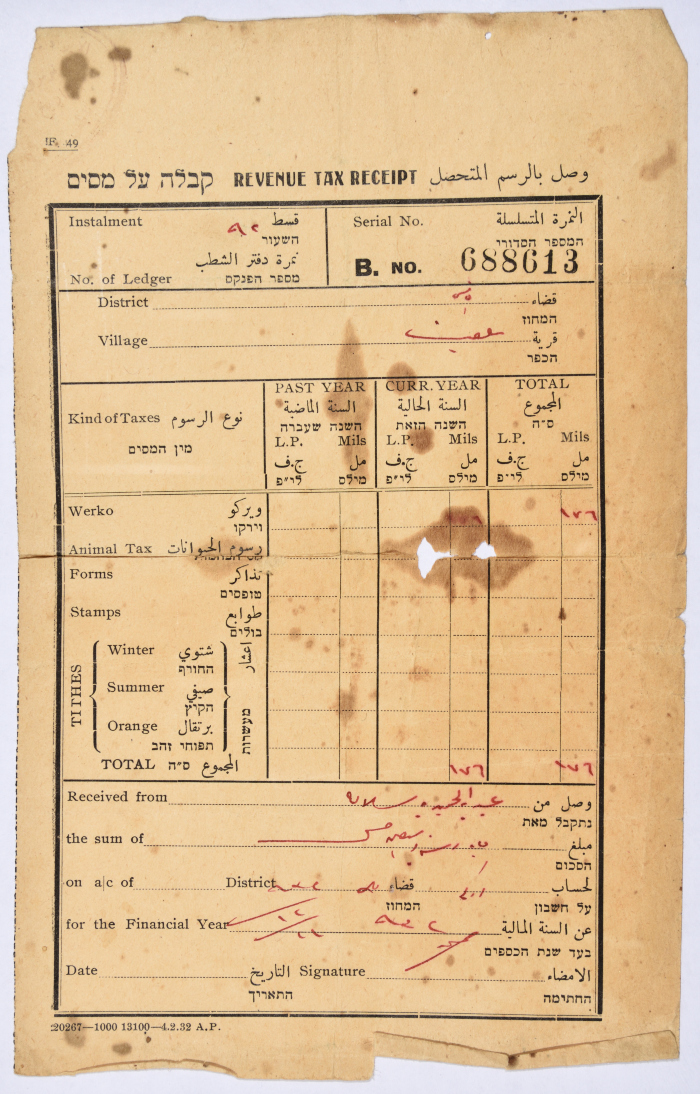 F. 49
קבלה על מסים REVENUE TAX RECEIPT وصل بالرسم المتحصل
Instalment قسط ٩٢
השעור
نمرة دفتر الشطب
No. of Ledger מספר הפנקס
Serial No. النمرة المتسلسلة
המספר הסדורי
B. NO. 688613
District قضاء
המחוז
Village قرية
הכפר
Kind of Taxes نوع الرسوم
מין המסים
PAST YEAR
السنة الماضية
השנה שעברה
L.P. Mils
ج.ف مل
לי״פ מילס
CURR. YEAR
السنة الحالية
השנה הזאת
L.P. Mils
ج.ف مل
לי״פ מילס
TOTAL
المجموع
ס״ה
L.P. Mils
ج.ف مل
לי״פ מילס
Werko ويركو ١٧٦ ١٧٦
וירקו
Animal Tax رسوم الحيوانات
Forms تذاكر
טופסים
Stamps طوابع
בולים
TITHES اعشار מעשרות
Winter شتوي
החורף
Summer صيفي
הקיץ
Orange برتقال
תפוחי זהב
TOTAL ס״ה المجموع ١٧٦ ١٧٦
Received from عبد الحميد وصل من
נתקבל מאת
the sum of مبلغ
הסכום
on a|c of District قضاء لحساب
המחוז על חשבון
for the Financial Year ٩٣٢ عن السنة المالية
בעד שנת הכספים
Date التاريخ Signature الامضاء
התאריך החתימה
20267—1000 13100—4.2.32 A.P.